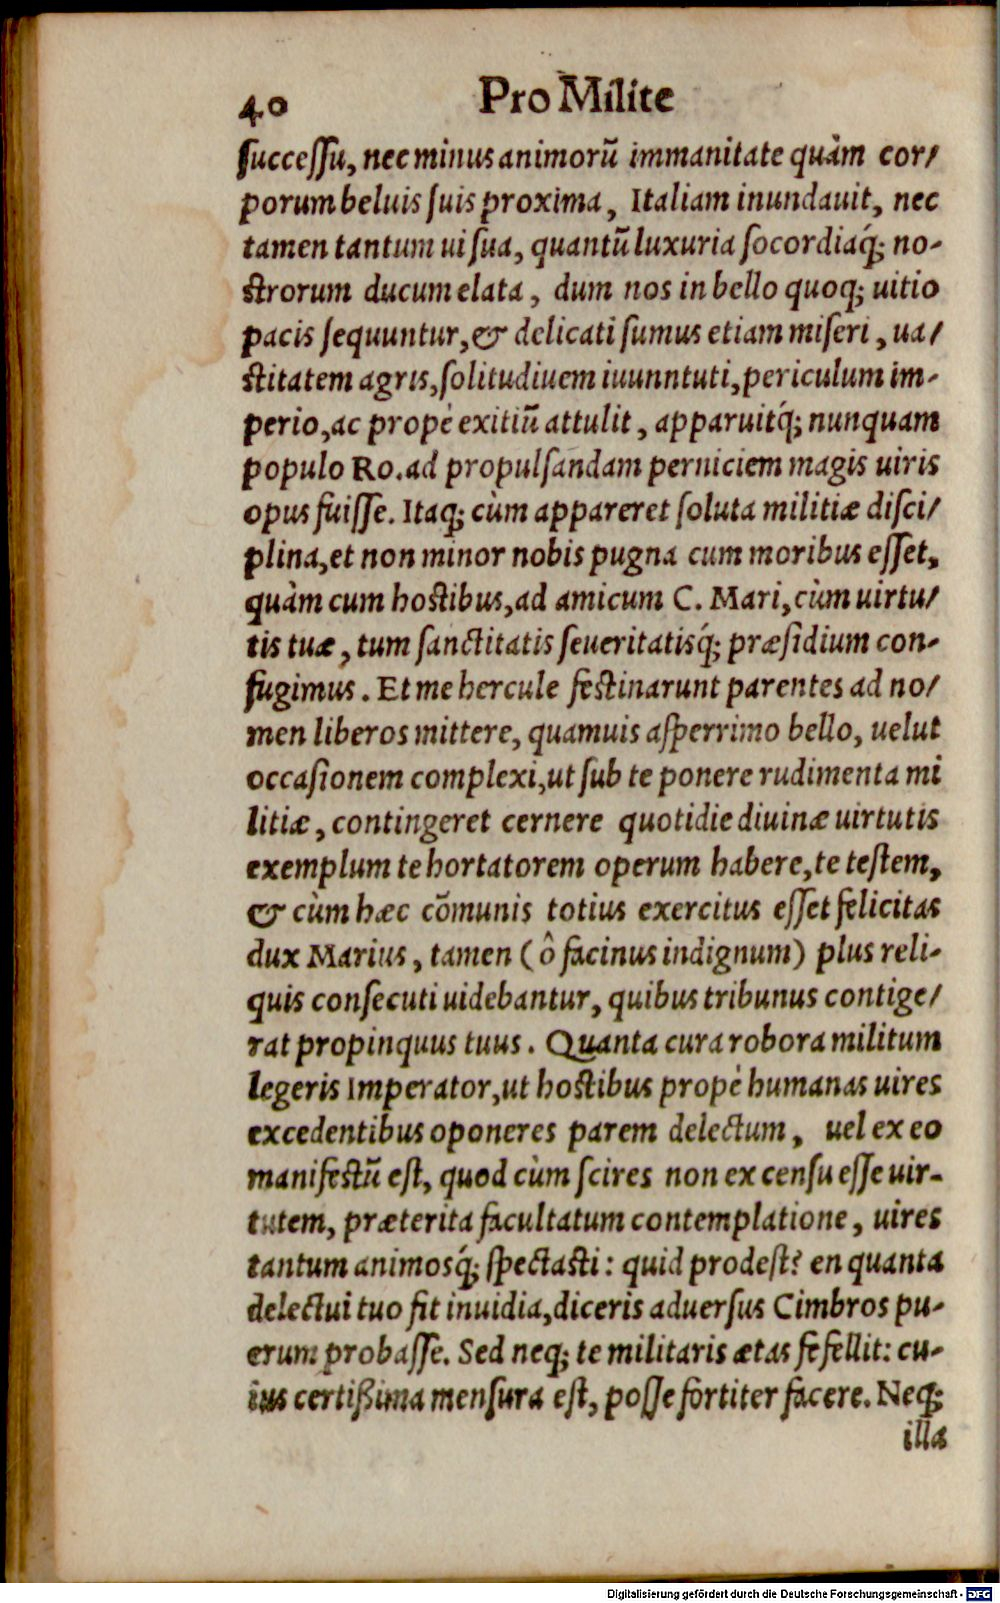 40 Pro Milite
successu, nec minus animorū immanitate quàm cor/
porum beluis suis proxima, Italiam inundauit, nec
tamen tantum ui sua, quantū luxuria socordiaq́; no-
strorum ducum elata, dum nos in bello quoq; uitio
pacis sequuntur, & delicati sumus etiam miseri, ua/
stitatem agris, solitudiuem iuunntuti, periculum im-
perio, ac propè exitiū attulit, apparuitq́; nunquam
populo Ro. ad propulsandam perniciem magis uiris
opus fuisse. Itaq; cùm appareret soluta militiæ disci/
plina, et non minor nobis pugna cum moribus esset,
quàm cum hostibus, ad amicum C. Mari, cùm uirtu/
tis tuæ, tum sanctitatis seueritatisq́; præsidium con-
fugimus. Et me hercule festinarunt parentes ad no/
men liberos mittere, quamuis asperrimo bello, uelut
occasionem complexi, ut sub te ponere rudimenta mi
litiæ, contingeret cernere quotidie diuinæ uirtutis
exemplum te hortatorem operum habere, te testem,
& cùm hæc cōmunis totius exercitus esset felicitas
dux Marius, tamen (ô facinus indignum) plus reli-
quis consecuti uidebantur, quibus tribunus contige/
rat propinquus tuus. Quanta cura robora militum
legeris Imperator, ut hostibus propè humanas uires
excedentibus oponeres parem delectum, uel ex eo
manifestū est, quod cùm scires non ex censu esse uir-
tutem, præterita facultatum contemplatione, uires
tantum animosq́; spectasti: quid prodest? en quanta
delectui tuo fit inuidia, diceris aduersus Cimbros pu-
erum probasse. Sed neq; te militaris ætas fefellit: cu-
ius certißima mensura est, posse fortiter facere. Neq;
illa
Digitalisierung gefördert durch die Deutsche Forschungsgemeinschaft - DFG